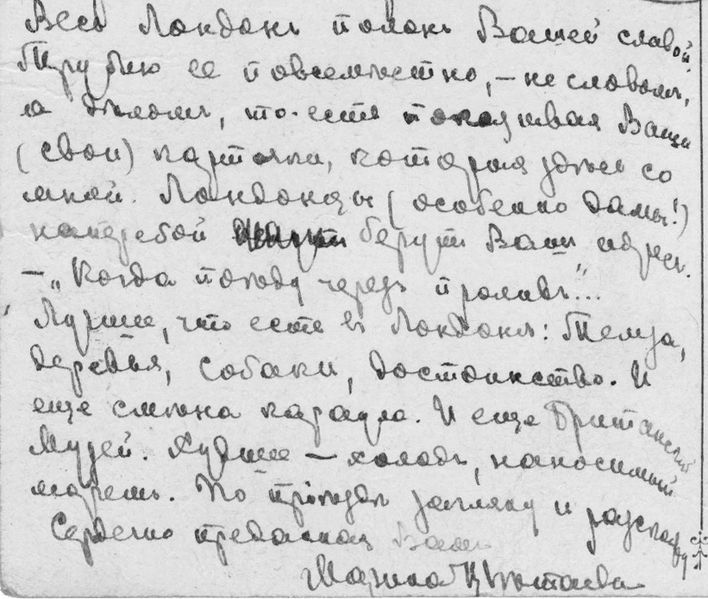 Весь Лондонъ полонъ Вашей славой.
Трублю ее повсемѣстно, – не словомъ,
а дѣломъ, то-есть показывая Ваши
(свои) карточки, которыя здѣсь со
мной. Лондонцы (особенно дамы!)
наперебой берутъ Вашъ адресъ.
– „Когда поѣду черезъ проливъ"...
Лучшее, что есть въ Лондонѣ: Темза,
деревья, собаки, достоинство. И
еще смѣна караула. И еще Британскій
Музей. Худшее – холодъ, наносимый
моремъ. По пріѣздѣ загляну и разскажу
Сердечно преданная Вамъ
Марина Цвѣтаева